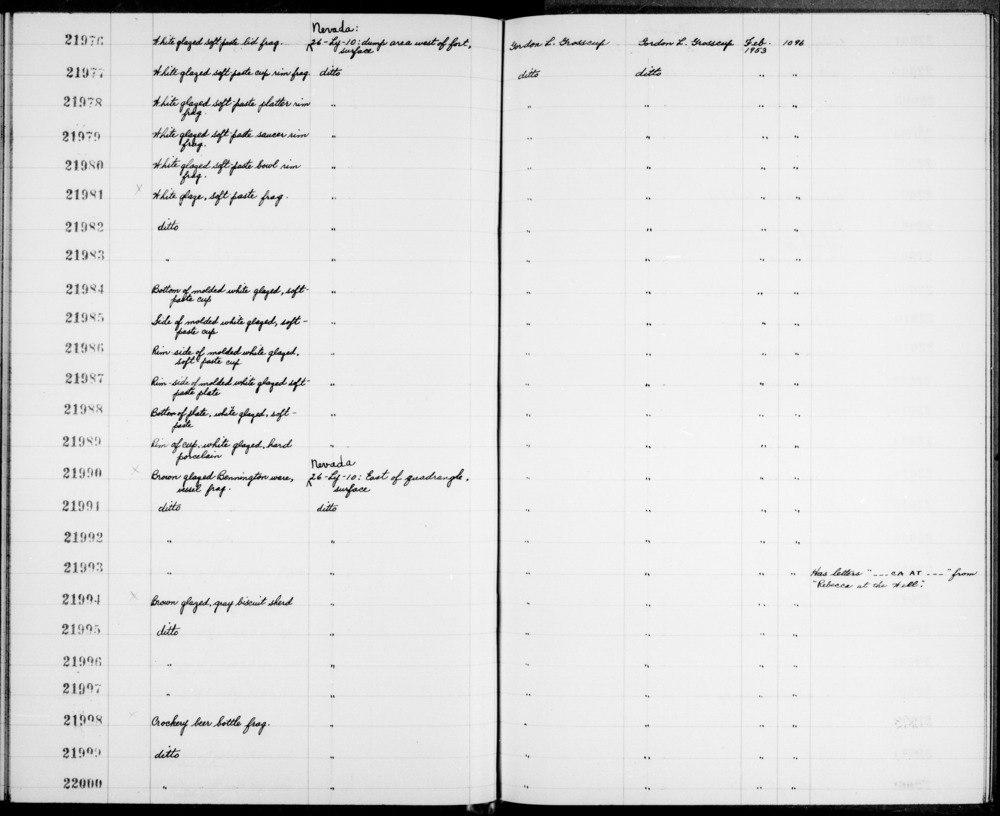 Nevada:
21976 White glazed soft paste lid frag. 26-Ly-10: dump area west of fort, Gordon L. Grosscup Gordon L. Grosscup Feb. 1096
surface 1953
21977 White glazed soft paste cup rim frag ditto ditto ditto " "
21978 White glazed soft-paste platter rim " " " " "
frag.
21979 White glazed soft paste saucer rim " " " " "
frag.
21980 White glazed soft paste bowl rim " " " " "
frag.
21981 X White glaze, soft paste frag. " " " " "
21982 ditto " " " " "
21983 " " " " " "
21984 Bottom of molded white glazed, soft- " " " " "
paste cup
21985 Side of molded white glazed, soft- " " " " "
paste cup
21986 Rim side of molded white glazed, " " " " "
soft paste cup
21987 Rim-side of molded white glazed soft- " " " " "
paste plate
21988 Bottom of plate, white glazed, soft- " " " " "
paste
21989 Rim of cup, white glazed, hard " " " " "
porcelain
Nevada
21990 X Brown glazed Bennington ware, 26-Ly-10: East of quadrangle, " " " "
vessel frag. surface
21991 ditto ditto " " " "
21992 " " " " " "
21993 " " " " " " Has letters "___CA AT ___" from
"Rebecca at the Well".
21994 X Brown glazed, gray biscuit sherd " " " " "
21995 ditto " " " " "
21996 " " " " " "
21997 " " " " " "
21998 X Crockery beer bottle frag. " " " " "
21999 ditto " " " " "
22000 " " " " " "